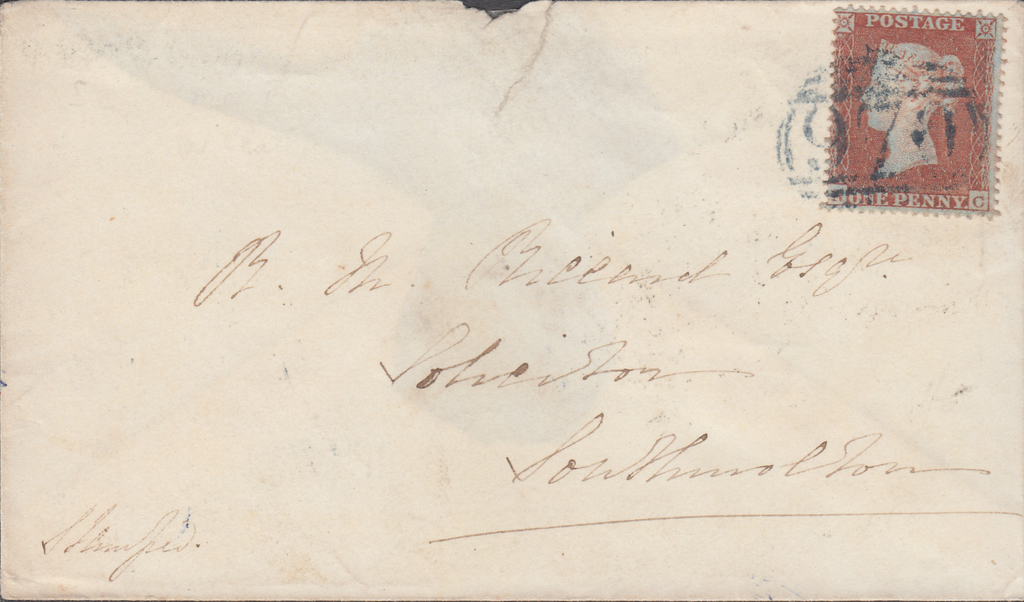 POSTAGE
970
ONE PENNY C
R. M. Riccard Esqre.
Solicitor
Southmolton
Stamped.